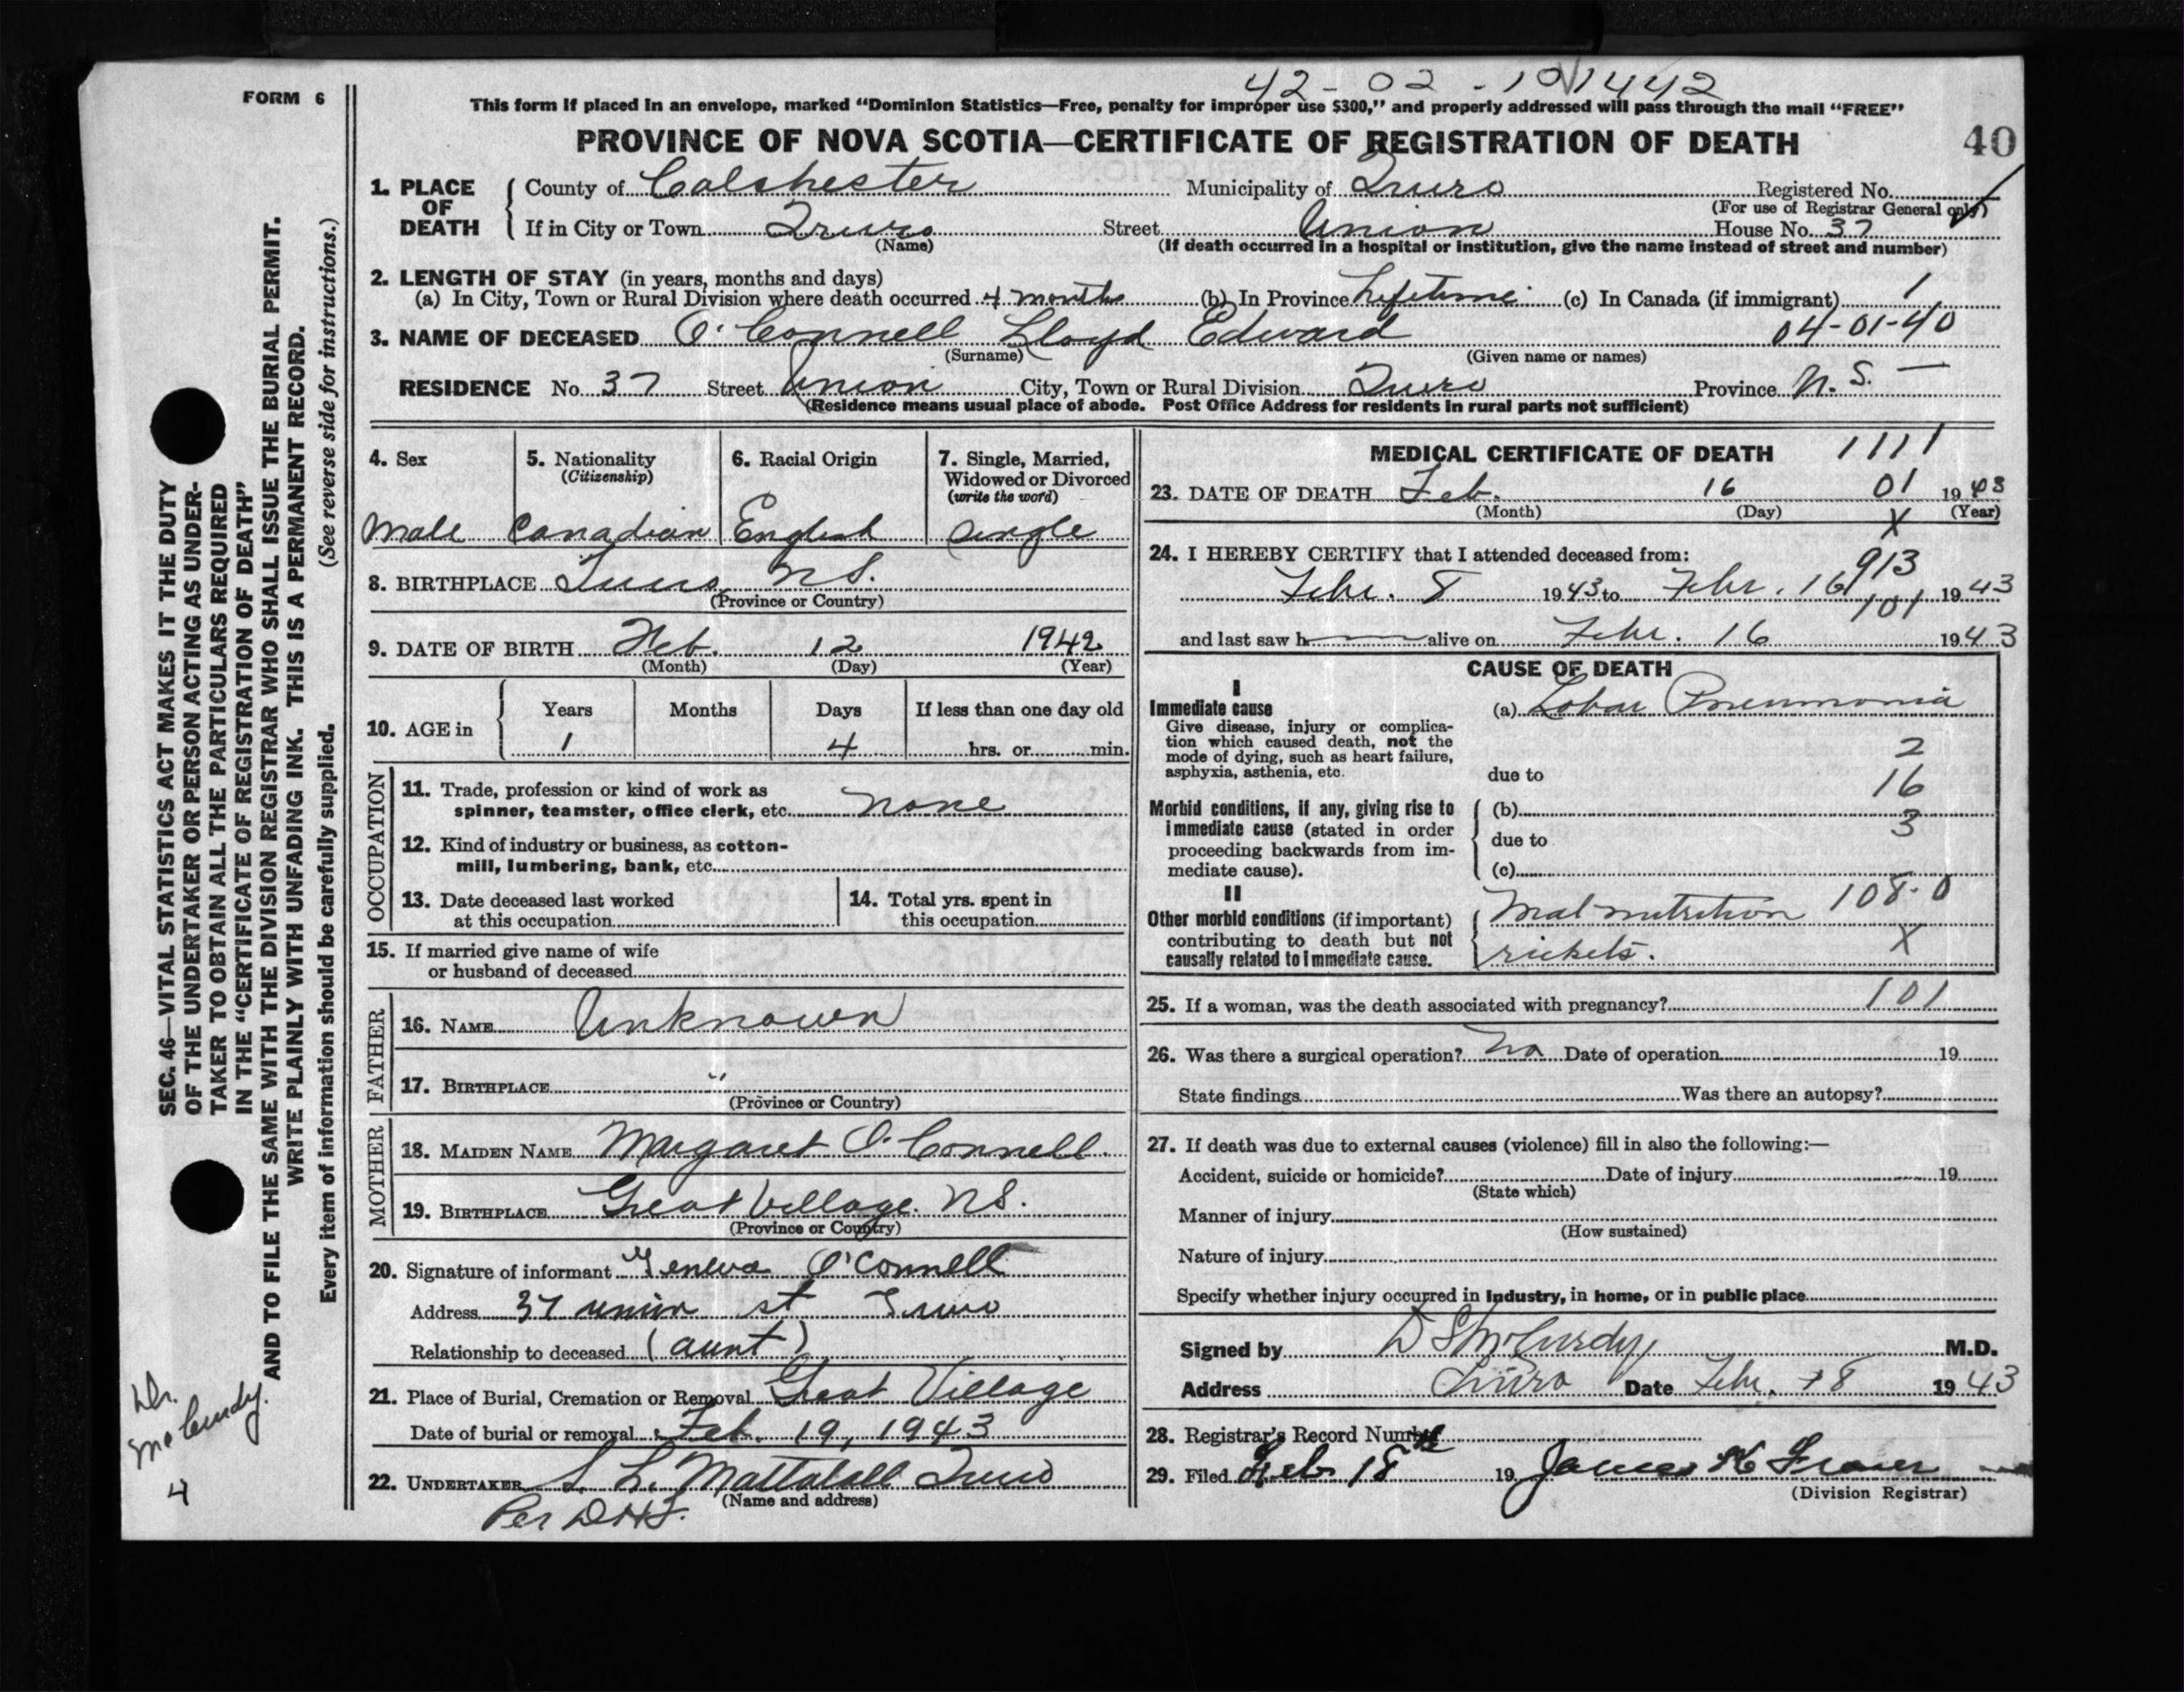 42-02-101442
FORM 6
This form if placed in an envelope, marked “Dominion Statistics—Free, penalty for improper use $300,” and properly addressed will pass through the mail “FREE”
PROVINCE OF NOVA SCOTIA—CERTIFICATE OF REGISTRATION OF DEATH 40
1. PLACE OF DEATH
County of Colchester Municipality of Truro Registered No.
(For use of Registrar General only)
If in City or Town Truro Street Union House No. 37
(Name) (If death occurred in a hospital or institution, give the name instead of street and number)
2. LENGTH OF STAY (in years, months and days)
(a) In City, Town or Rural Division where death occurred 4 months (b) In Province Lifetime (c) In Canada (if immigrant) 1
04-01-40
3. NAME OF DECEASED O'Connell Lloyd Edward
(Surname) (Given name or names)
RESIDENCE No. 37 Street Union City, Town or Rural Division Truro Province N.S. —
(Residence means usual place of abode. Post Office Address for residents in rural parts not sufficient)
4. Sex 5. Nationality 6. Racial Origin 7. Single, Married,
(Citizenship) Widowed or Divorced
(write the word)
Male Canadian English single
8. BIRTHPLACE Truro N.S.
(Province or Country)
9. DATE OF BIRTH Feb. 12 1942
(Month) (Day) (Year)
10. AGE in Years Months Days If less than one day old
1 4 hrs. or min.
OCCUPATION
11. Trade, profession or kind of work as
spinner, teamster, office clerk, etc. none
12. Kind of industry or business, as cotton-
mill, lumbering, bank, etc.
13. Date deceased last worked
at this occupation
14. Total yrs. spent in
this occupation
15. If married give name of wife
or husband of deceased
FATHER
16. NAME Unknown
17. BIRTHPLACE "
(Province or Country)
MOTHER
18. MAIDEN NAME Margaret O'Connell.
19. BIRTHPLACE Great Village. N.S.
(Province or Country)
20. Signature of informant Geneva O'Connell
Address 37 union st Truro
Relationship to deceased (aunt)
21. Place of Burial, Cremation or Removal Great Village
Date of burial or removal Feb. 19, 1943
22. UNDERTAKER S. L. Mattatall Truro
(Name and address)
Per
MEDICAL CERTIFICATE OF DEATH 1111
23. DATE OF DEATH Feb. 16 01 1943
(Month) (Day) X (Year)
24. I HEREBY CERTIFY that I attended deceased from:
913
Febr. 8 1943 to Febr. 16 1943
101
and last saw h alive on Febr. 16 1943
CAUSE OF DEATH
I
Immediate cause (a) Lobar Pneumonia
Give disease, injury or complica-
tion which caused death, not the
mode of dying, such as heart failure, 2
asphyxia, asthenia, etc. due to 16
Morbid conditions, if any, giving rise to (b)
immediate cause (stated in order 3
proceeding backwards from im- due to
mediate cause). (c)
II
Other morbid conditions (if important) Malnutrition 108-0
contributing to death but not X
causally related to immediate cause. rickets.
25. If a woman, was the death associated with pregnancy? 101
26. Was there a surgical operation? No Date of operation 19
State findings Was there an autopsy?
27. If death was due to external causes (violence) fill in also the following:—
Accident, suicide or homicide? Date of injury 19
(State which)
Manner of injury
(How sustained)
Nature of injury
Specify whether injury occurred in industry, in home, or in public place
Signed by D S McCurdy M.D.
Address Truro Date Febr. 18 1943
28. Registrar's Record Number
29. Filed Feb 18th 19 James K Fraser
(Division Registrar)
SEC. 46—VITAL STATISTICS ACT MAKES IT THE DUTY
OF THE UNDERTAKER OR PERSON ACTING AS UNDER-
TAKER TO OBTAIN ALL THE PARTICULARS REQUIRED
IN THE “CERTIFICATE OF REGISTRATION OF DEATH”
AND TO FILE THE SAME WITH THE DIVISION REGISTRAR WHO SHALL ISSUE THE BURIAL PERMIT.
WRITE PLAINLY WITH UNFADING INK. THIS IS A PERMANENT RECORD.
Every item of information should be carefully supplied. (See reverse side for instructions.)
Dr.
McCurdy.
4